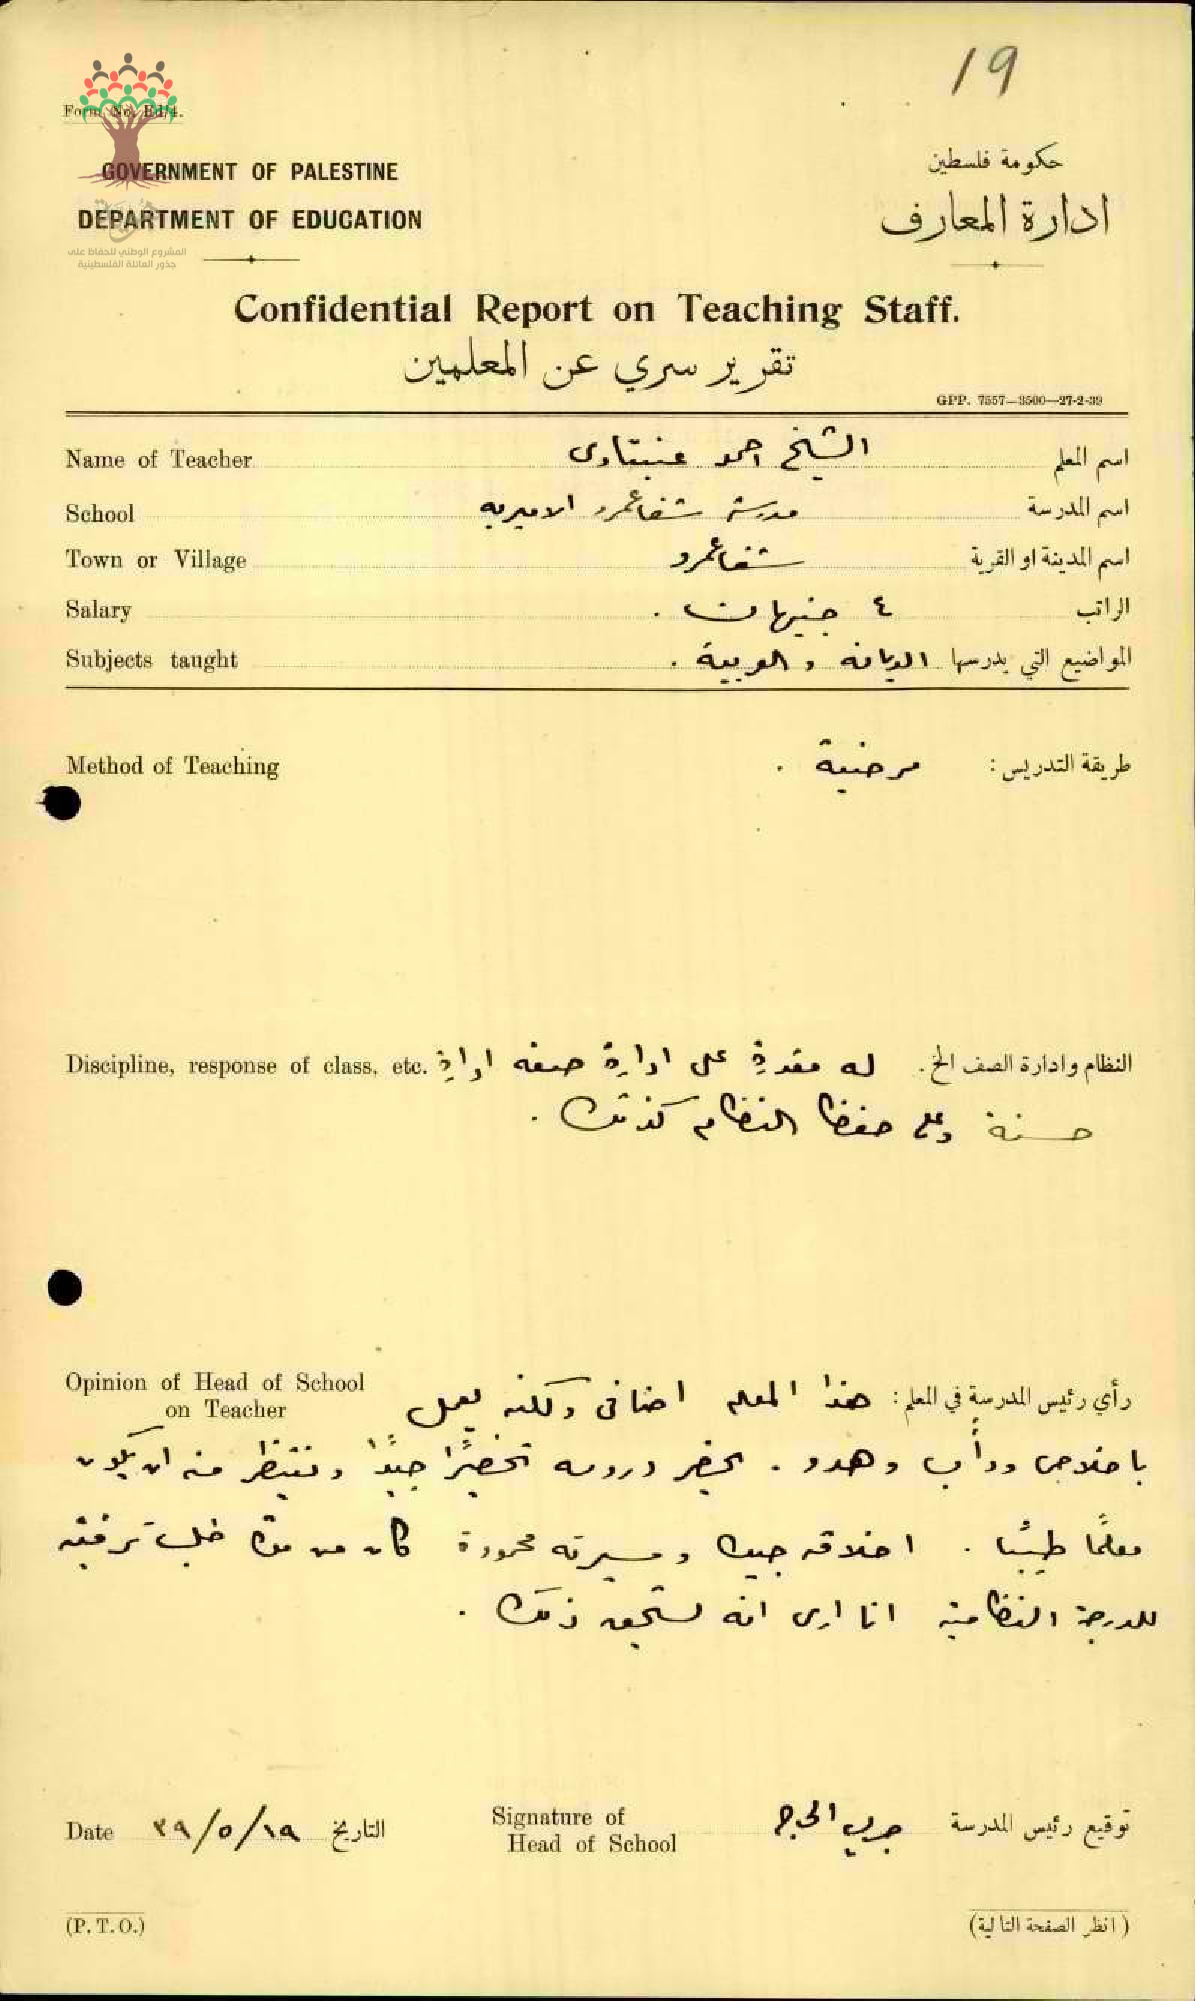 19
Form No. Ed/4.
GOVERNMENT OF PALESTINE
حكومة فلسطين
DEPARTMENT OF EDUCATION
ادارة المعارف
المشروع الوطني للحفاظ على
جذور العائلة الفلسطينية
Confidential Report on Teaching Staff.
تقرير سري عن المعلمين
GPP. 7557—3500—27-2-39
Name of Teacher الشيخ احمد عنبتاوى اسم المعلم
School مدرسة شفاعمرو الاميريه اسم المدرسة
Town or Village شفاعمرو اسم المدينة او القرية
Salary ٤ جنيهات . الراتب
Subjects taught المواضيع التي يدرسها الديانه و العربية .
Method of Teaching طريقة التدريس : مرضية .
Discipline, response of class, etc. النظام وادارة الصف الخ . له مقدرة على ادارة صفه ادارة
حسنة وعلى حفظ النظام كذلك .
Opinion of Head of School
on Teacher
رأي رئيس المدرسة في المعلم : هذا المعلم اضافى ولكنه يعمل
باخلاص ودأب وهدو . يحضر دروسه تحضيرًا جيدًا وننتظر منه ان يكون
معلمًا طيبًا . اخلاقه جيدة وسيرته محمودة كان من مدة طلب ترقيته
للدرجة النظامية انا ارى انه يستحق ذلك .
Date ١٩/٥/٣٩ التاريخ
Signature of
Head of School
توقيع رئيس المدرسة
(P. T. O.)
( انظر الصفحة التالية)